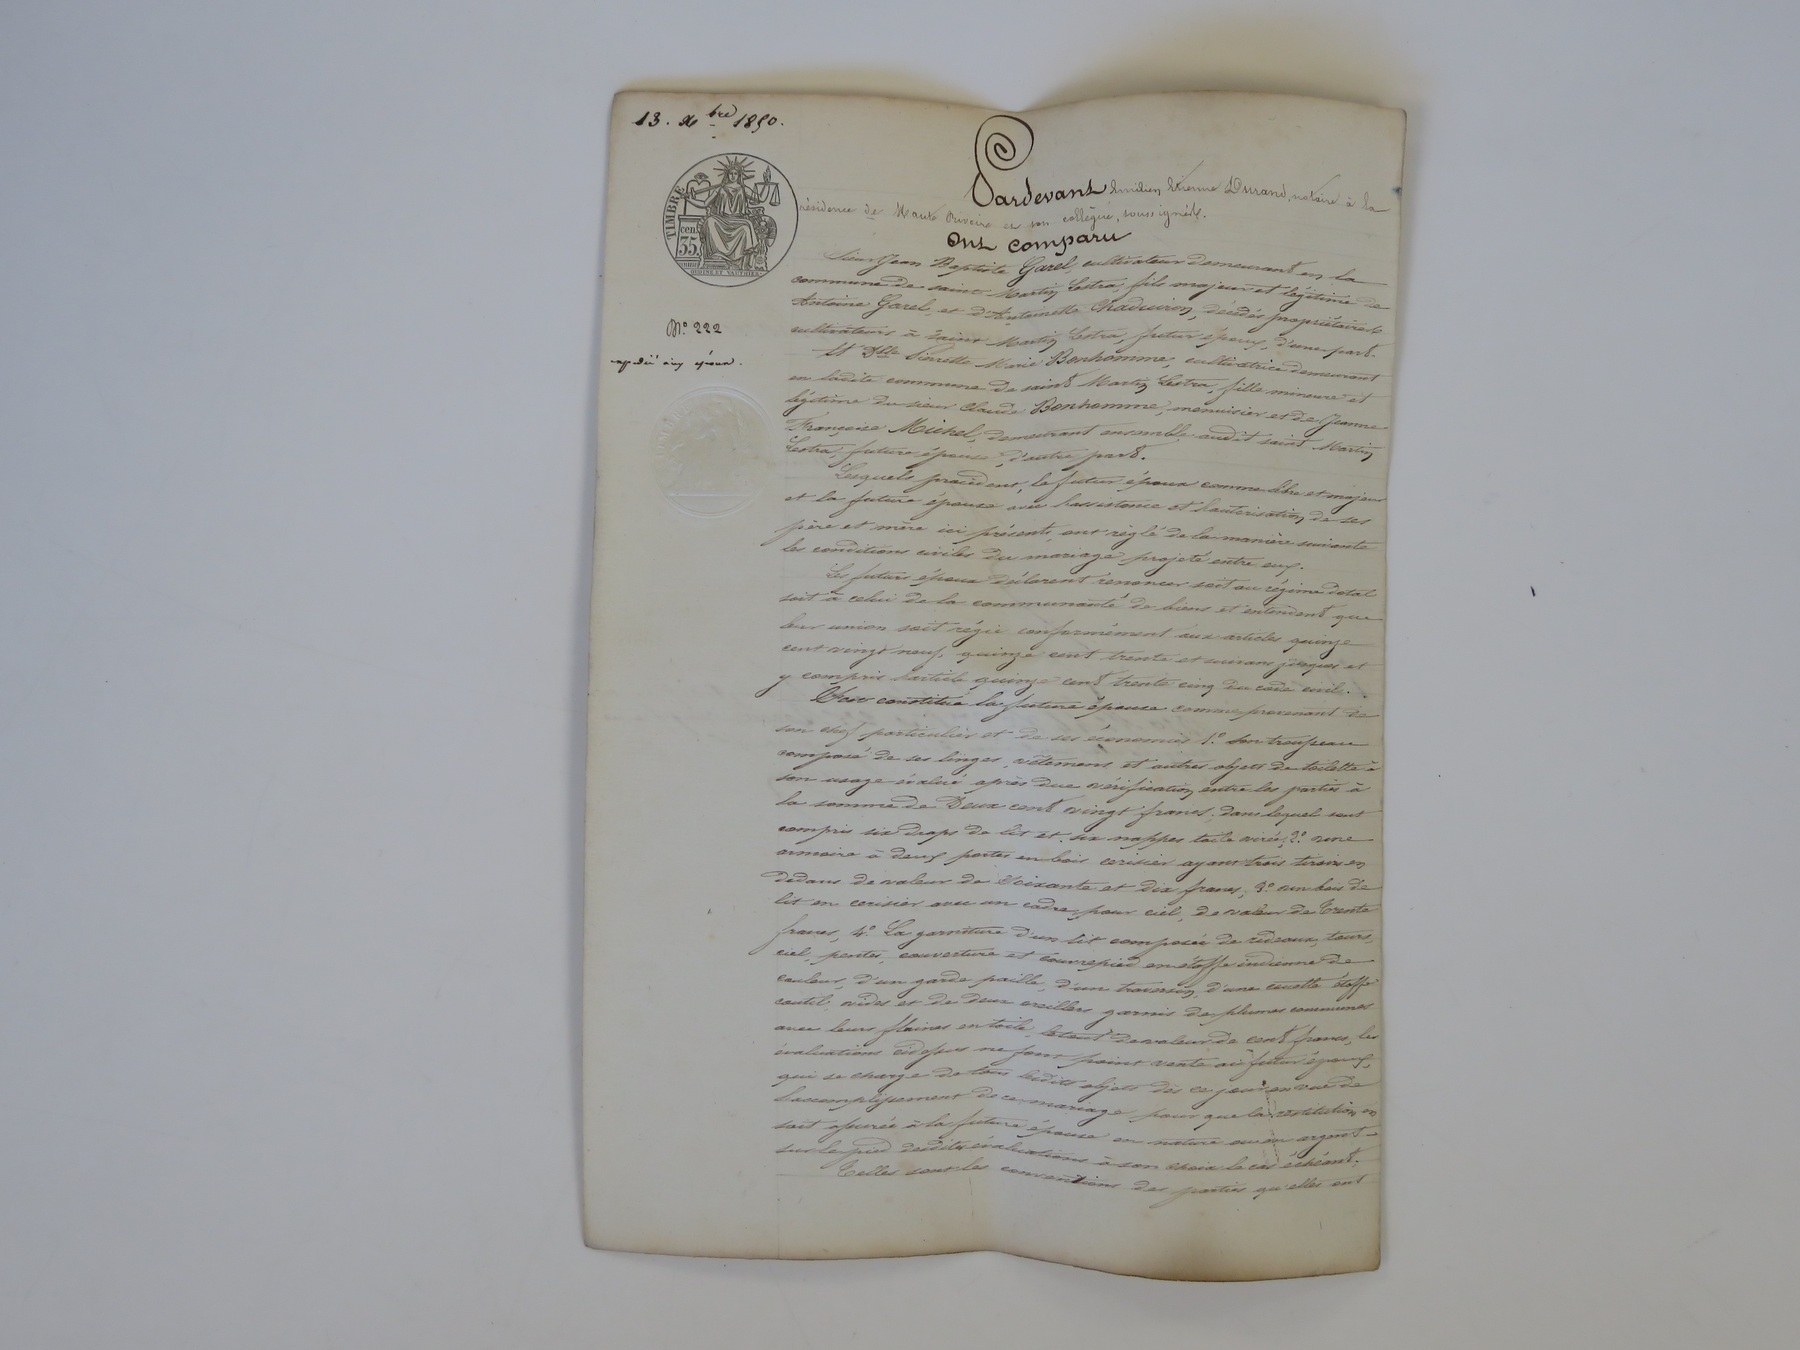 13. Xbre 1850.
TIMBRE
cen.
35
N.° 222
Pardevant Etienne Durand, notaire à la
résidence de Haute Rivoire et son collègue, soussignés.
Ont comparu
Sieur Jean Baptiste Garel, cultivateur demeurant en la
commune de saint Martin Lestra, fils majeur et légitime de
Antoine Garel, et d'Antoinette décédés propriétaires
cultivateurs à saint Martin Lestra, futur époux, d'une part.
Et Dlle Pierrette Marie Bonhomme, cultivatrice demeurant
en ladite commune de saint Martin Lestra, fille mineure et
légitime du sieur Claude Bonhomme, menuisier et de Jeanne
Françoise Michel, demeurant ensemble audit saint Martin
Lestra, future épouse, d'autre part.
Lesquels procédent, le futur époux comme libre et majeur
et la future épouse avec l'assistance et l'autorisation de ses
père et mère ici présents, ont réglé de la manière suivante
les conditions civiles du mariage projeté entre eux.
Les futurs époux déclarent renoncer soit au régime dotal
soit à celui de la communauté de biens et entendent que
leur union soit régie conformément aux articles quinze
cent vingt neuf, quinze cent trente et suivans jusques et
y compris l'article quinze cent trente cinq du code civil.
constitué la future épouse comme provenant de
son chef particulier et de ses économies 1.° son trousseau
composé de ses linges, vêtemens et autres objets de toilette à
son usage évalué après due vérification entre les parties à
la somme de Deux cent vingt francs, dans lequel sont
compris six draps de lit et six nappes toile 2.° une
armoire à deux portes en bois cerisier ayant trois tiroirs en
dedans de valeur de Soixante et dix francs, 3.° un bois de
lit en cerisier avec un cadre pour ciel, de valeur de Trente
francs, 4.° La garniture d'un lit composée de rideaux, tours,
ciel, pentes, couverture et couvrepied en étoffe indienne de
couleur, d'un garde paille, d'un traversin, d'une couette étoffe
coutil vides et de deux oreillers garnis de plumes communes
avec leurs flaines en toile, le tout de valeur de cent francs, les
évaluations ci dessus ne font point vente au futur époux,
qui se charge de tous lesdits objets dès ce jour en vue de
l'accomplissement de ce mariage pour que la restitution en
soit assurée à la future épouse en nature ou en argent
sur le pied desdites évaluations à son choix le cas échéant.
Telles sont les conventions des parties qu'elles ont